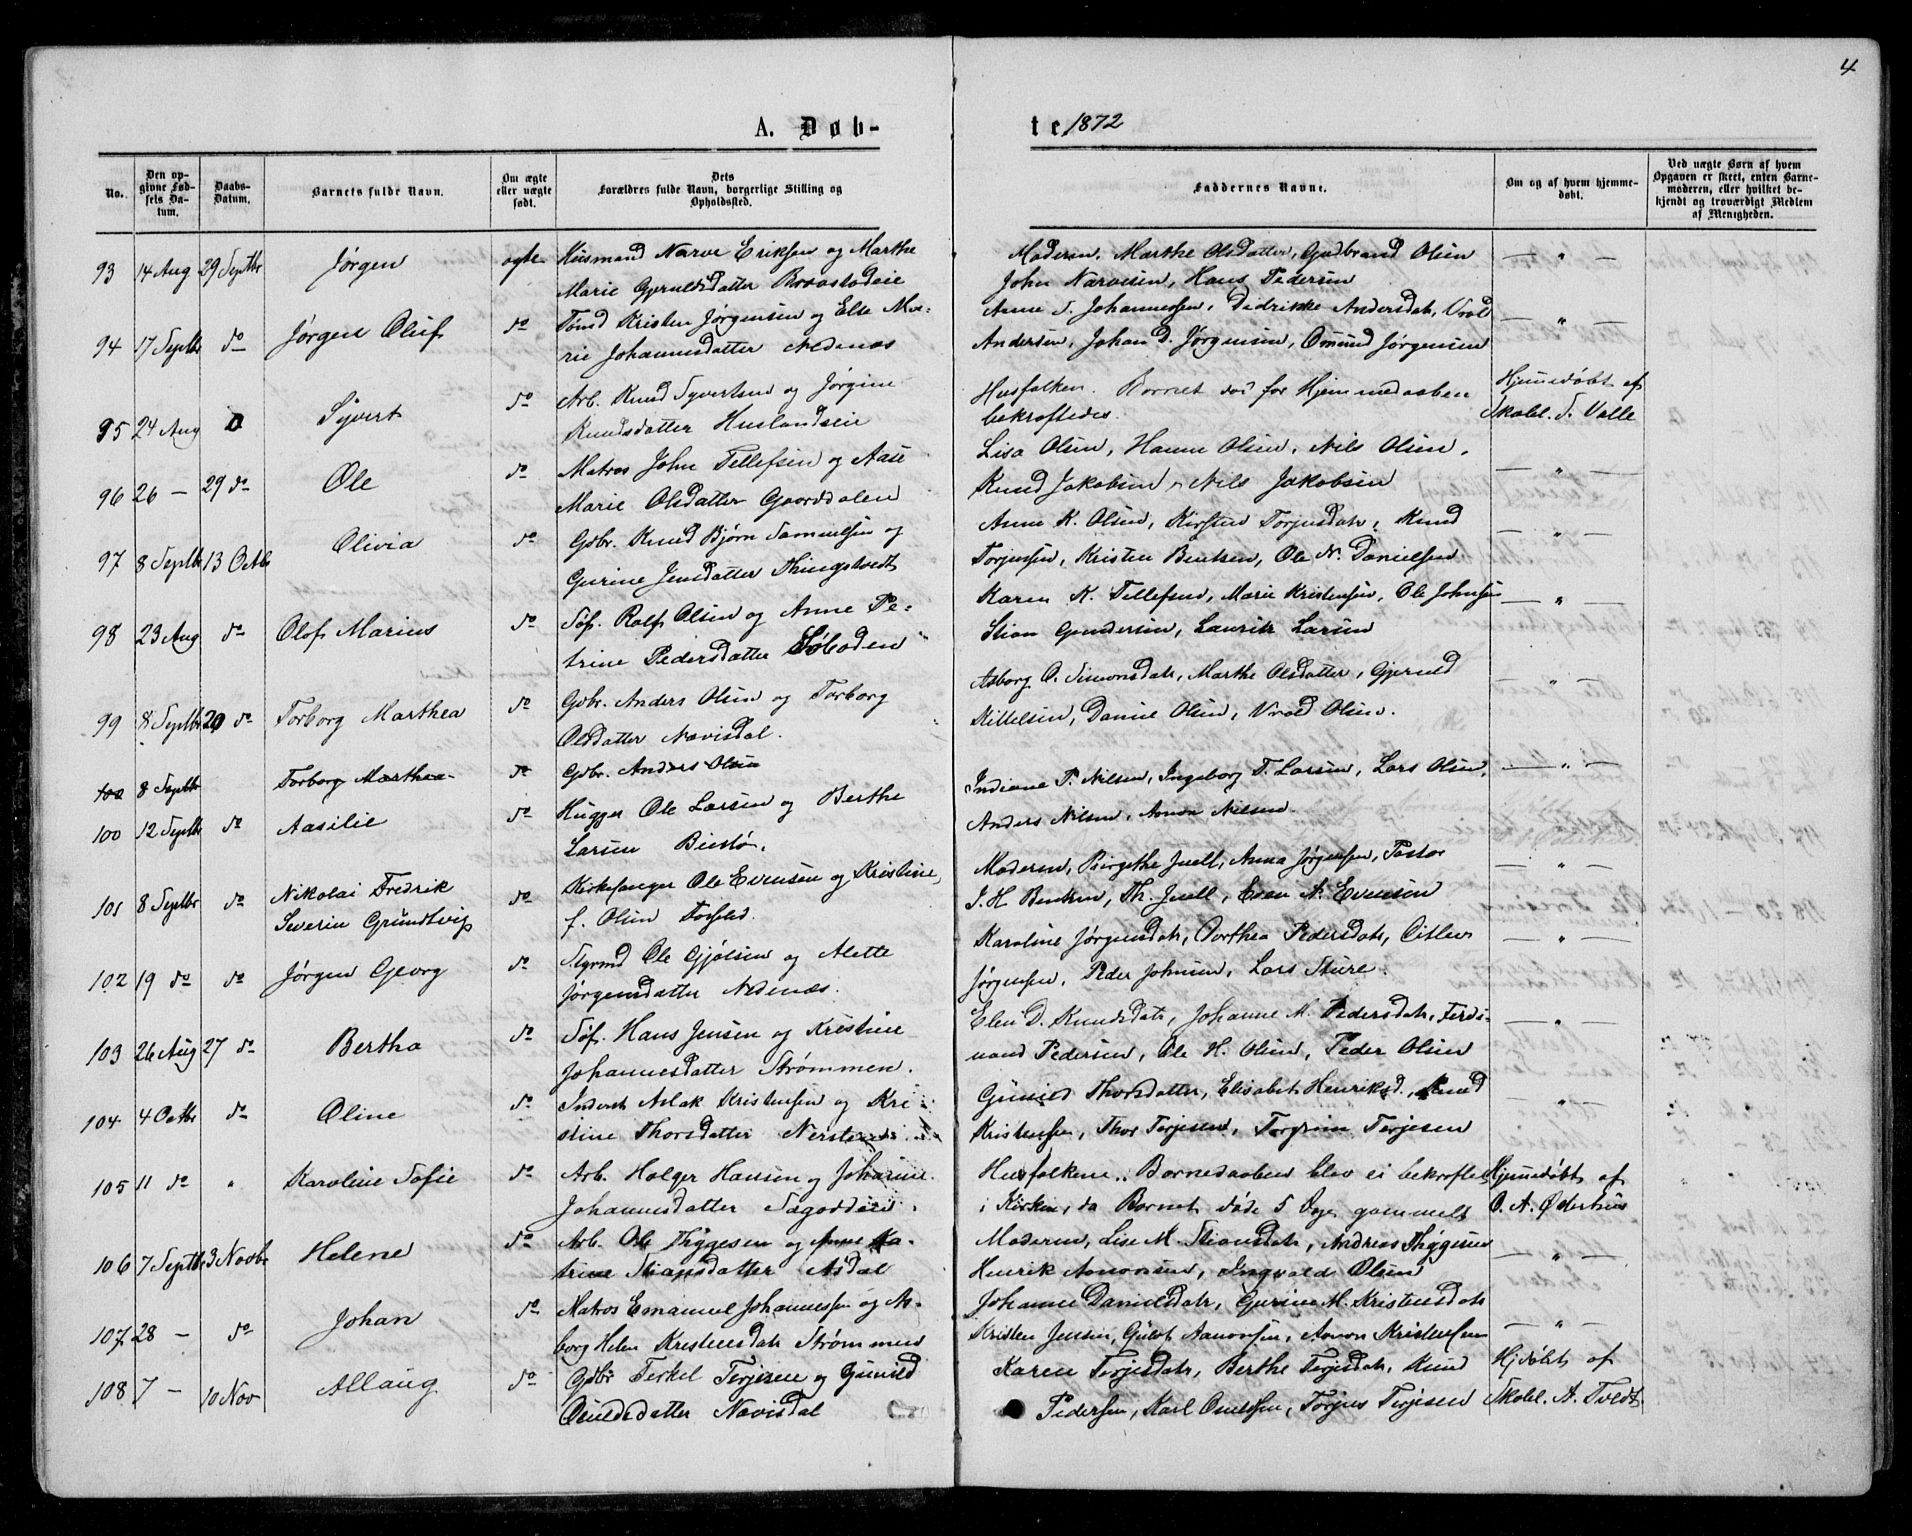 4
A. Døb-
te 1872
No.
Den op-
givne Fød-
sels Da-
tum.
Daabs-
Datum.
Barnets fulde Navn.
Om ægte
eller uægte
født.
Dets
Forældres fulde Navn, borgerlige Stilling og
Opholdssted.
Faddernes Navne.
Om og af hvem hjemme-
døbt.
Ved uægte Børn af hvem
Opgaven er skeet, enten Barne-
moderen, eller hvilket be-
kjendt og troværdigt Medlem
af Menigheden.
93 14 Aug 29 Septbr Jørgen ægte Husmand Narve Eriksen og Marthe
Marie Gjeruldsdatter
Moderen, Marthe Olsdatter, Gudbrand Olsen — " —
John Narvesen, Hans Pedersen
94 17 Septbr do Jørgen Oluf do Tømd Kristen Jørgensen og Else Ma-
rie Johannesdatter Nedenæs
Anne S. Johannessen, Didrikke Andersdatr, Vrold — " —
Andersen, Johan D. Jørgensen, Osmund Jørgensen
95 24 Aug Syvert do Arb. Knud Syvertsen og Jørgine
Knudsdatter Huslandseie
Husfolken. Barnet for Hjemmedaaben
bekræftedes.
Hjemedøbt af
Skolel. S. Valle
96 26 — 29 do Ole do Matros John Tellefsen og Aase
Marie Olsdatter Gaarddalen
Lisa Olsen, Hanne Olsen, Nils Olsen, — " —
Knud Jakobsen, Nils Jakobsen
97 8 Septbr 13 Octbr Olivia do Gdbr. Knud Bjørn Samuelsen og
Gurine Jensdatter Thingstvedt
Anne K. Olsen, Kirsten Torjusdatr, Knud — " —
Torjussen, Kristen Bentsen, Ole N. Danielsen
98 23 Aug do Olof Marius do Søf. Rolf Olsen og Anne Pe-
trine Pedersdatter Søboden
Karen K. Tellefsen, Marie Kristensen, Ole Johnsen — " —
Stian Gundersen, Lauritz Larsen
99 8 Septbr 20 do Torborg Marthea do Gdbr. Anders Olsen og Torborg
Olsdatter Navisdal.
Asborg O. Simonsdatr, Marthe Olsdatter, Gjeruld — " —
Kittelsen, Daniel Olsen, Vrold Olsen.
100 8 Septbr Torborg Marthea do Gdbr. Anders Olsen
100 12 Septbr do Aasilie do Hugger Ole Larsen og Berthe
Larsen Biestø.
Indiane P. Nilsen, Ingeborg T. Larsen, Lars Olsen, — " —
Anders Nilsen, Aanon Nilsen.
101 8 Septbr do Nikolai Fredrik
Severin Grundtvig
do Kirkesanger Ole Evensen og Kristine,
f. Olsen
Moderen, Birgithe Juell, Anna Jørgensen, Pastor — " —
J. H. Bentsen, Th. Juell, Even N. Evensen
102 19 do do Jørgen Georg do Styrmd Ole Gjølsen og Alette
Jørgensdatter Nedenæs.
Karoline Jørgensdatr, Dorthea Pedersdatr, Ditlev — " —
Jørgensen, Peder Johnsen, Lars Sture.
103 26 Aug 27 do Bertha do Søf. Hans Jensen og Kristine
Johannesdatter Strømmen.
Elen D. Knudsdatr, Johanne M. Pedersdatr, Ferdi- — " —
nand Pedersen, Ole H. Olsen, Peder Olsen
104 4 Octbr do Oline do Inderst Aslak Kristensen og Kri-
stine Thorsdatter
Gunild Thorsdatter, Elisabet Henriksd, Knud "
Kristensen, Thor Terjesen, Torgrim Terjesen
105 11 do " Karoline Sofie do Arb. Holger Hansen og Johanne
Johannesdatter Sagoddeie.
Husfolkene. Barnedaaben blev ei bekræftet
i Kirken, da Barnet døde 5 Dage gammelt
Hjemedøbt af
O. A. Øderhuus
106 7 Septbr 3 Novbr Helene do Arb. Ole Thygesen og Anne Ka-
trine Stiansdatter Asdal
Moderen, Lise M. Stiansdatr, Andreas Thygesen — " —
Henrik Aanonsen, Ingvald Olsen
107 28 — do Johan do Matros Emanuel Johannessen og As-
borg Helen Kristensdatr Strømmen
Johanne Danielsdatr, Gurine M. Kristensdatr
Kristen Jensen, Aanonsen, Aanon Kristensen — " —
108 7 — 10 Nov Allaug do Gdbr Terkel Terjesen og Gunild
Osuldsdatter Navisdal
Karen Terjesdatr, Berthe Terjesdatr, Knud
Pedersen, Karl Osuldsen, Torjus Terjesen
Hjdøbt af
Skolel. A. Tvedt